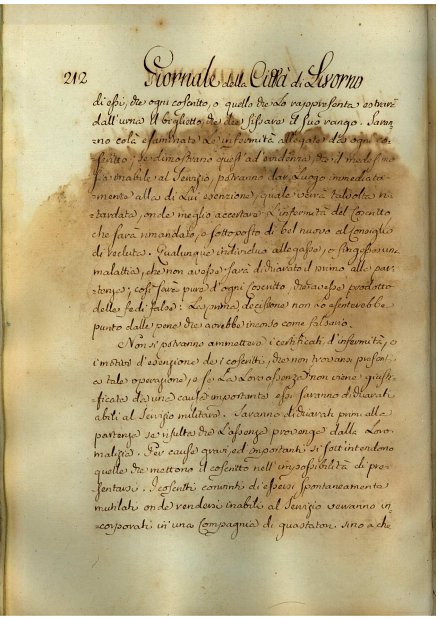 212 Giornale della Città di Livorno
di essi, che ogni coscritto, o quello che lo rappresenta estrarrà
dall'urna il biglietto che dee fissare il suo rango. Saran-
no colà esaminate le infermità allegate da ogni co-
scritto; se dimostrano quest' ad evidenza, che il medesimo
è inabile al Servizio, potranno dar luogo immediata-
mente alla di lui esenzione, quale verrà talvolta ri-
tardata, onde meglio accertare l'infermità del Coscritto
che sarà rimandato, o sottoposto di bel nuovo al consiglio
di recluta. Qualunque individuo allegasse, o fingesse una
malattia, che non avesse sarà dichiarato il primo alla par-
tenza; così sarà pure d'ogni Coscritto, che avesse prodotto
delle fedi false: La prima decisione non lo esenterebbe
punto dalle pene che avrebbe incorso come falsario.
Non si potranno ammettere i certificati d'infermità, o
i motivi d'esenzione dei coscritti, che non trovansi presenti
a tale operazione, e se la loro assenza non viene giusti-
ficata da una causa importante essi saranno dichiarati
abili al Servizio militare. Saranno dichiarati primi alla
partenza se risulta che l'assenza provenga dalla loro
malizia. Per cause gravi, ed importanti si sott'intendono
quelle che mettono il coscritto nell'impossibilità di pre-
sentarsi. I coscritti convinti di essersi spontaneamente
mutilati onde rendersi inabili al Servizio verranno in-
corporati in una Compagnia di guastatori sino a che